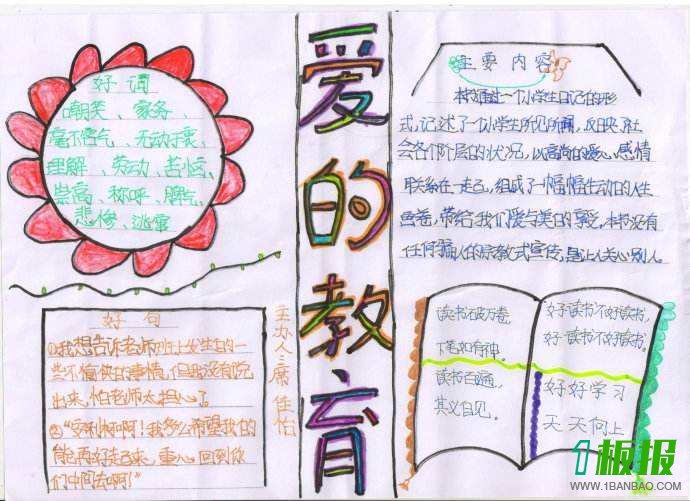 好词
嘲笑、家务、
毫不客气、无动于衷、
理解、劳动、苦恼、
崇高、称呼、脾气、
悲惨、逃塞
爱的教育
主要内容
本书通过一个小学生日记的形
式,记述了一个小学生所见所闻,反映了社
会各个阶层的状况,以高尚的爱心、感情
联系在一起,组成了一幅幅生动的人生
画卷,带给我们爱与美的享受,本书没有
任何骗人的宗教式宣传,是让人关心别人。
好句
①我想告诉老师班上发生的一
些不愉快的事情,但却没有说
出来,怕老师太担心了。
②“安利柯啊!我多么希望我的
能再好起来,重心回到你
们中间去啊!”
主办人:席佳怡
读书破万卷,
下笔如有神。
读书百遍,
其义自见。
好读书不好读书,
好读书不好读书。
好好学习
天天向上
1板报
WWW.1BANBAO.COM